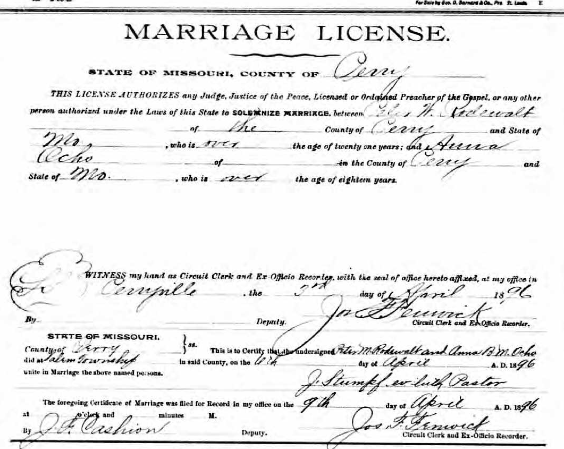 For Sale by Geo. D. Barnard & Co., Prs. St. Louis
MARRIAGE LICENSE.
STATE OF MISSOURI, COUNTY OF Perry
THIS LICENSE AUTHORIZES any Judge, Justice of the Peace, Licensed or Ordained Preacher of the Gospel, or any other
person authorized under the Laws of this State to SOLEMNIZE MARRIAGE, between Peter W. Rodewalt
of the County of Perry and State of
Mo. , who is over the age of twenty one years; and Anna
Ocho of in the County of Perry and
State of Mo. , who is over the age of eighteen years.
WITNESS my hand as Circuit Clerk and Ex-Officio Recorder, with the seal of office hereto affixed, at my office in
Perryville , the 3rd day of April 1896
By Deputy. Jos F. Fenwick
Circuit Clerk and Ex-Officio Recorder.
STATE OF MISSOURI,
County of Perry } ss. This is to Certify that the undersigned Peter M. Rodewalt and Anna B. M. Ocho
did at Salem Township in said County, on the day of April A. D. 1896
unite in Marriage the above named persons.
J. Stumpf ev. luth Pastor
The foregoing Certificate of Marriage was filed for Record in my office on the 9th day of April A. D. 1896
at o'clock and minutes M.
By J. F. Cashion Deputy. Jos F. Fenwick
Circuit Clerk and Ex-Officio Recorder.